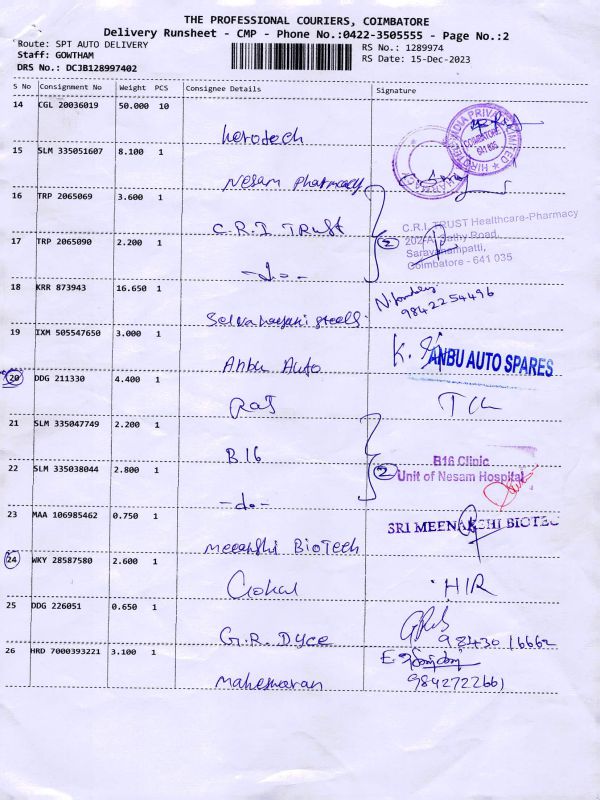 THE PROFESSIONAL COURIERS, COIMBATORE
Delivery Runsheet - CMP - Phone No.:0422-3505555 - Page No.:2
Route: SPT AUTO DELIVERY
RS No.: 1289974
Staff: GOWTHAM
RS Date: 15-Dec-2023
DRS No.: DCJB128997402
S No Consignment No Weight PCS Consignee Details Signature
14 CGL 20036019 50.000 10
herotech
COIMBATORE
641 035
15 SLM 335051607 8.100 1
Nesam Pharmacy
PHARMACY
16 TRP 2065069 3.600 1
C.R.I TRUST
C.R.I. TRUST Healthcare-Pharmacy
17 TRP 2065090 2.200 1
2
202-A, Sathy Road,
Saravanampatti,
Coimbatore - 641 035
-do-
18 KRR 873943 16.650 1
9842254496
Selvanayaki steels.
19 IXM 505547650 3.000 1
Anbu Auto
K.
ANBU AUTO SPARES
20 DDG 211330 4.400 1
Raj
21 SLM 335047749 2.200 1
B16
B16 Clinic
Unit of Nesam Hospital
22 SLM 335038044 2.800 1
2
-do-
23 MAA 106985462 0.750 1
SRI MEENAKSHI BIOTEC
Meenakshi BioTech
24 WKY 28587580 2.600 1
Gokul
HIR
25 DDG 226051 0.650 1
G.R. Dyce
98430 16662
26 HRD 7000393221 3.100 1
9842722661
Maheswaran